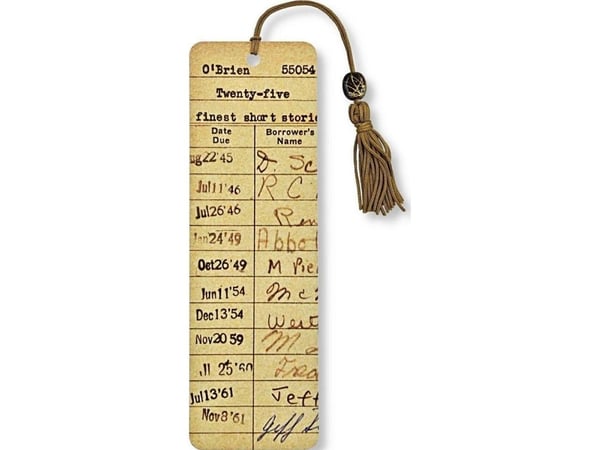 O'Brien 55054
Twenty-five
finest short storie
Date Due Borrower's Name
ug 22'45 D. Sc
Jul 11'46 R C
Jul 26'46 Ren
Jan 24'49 Abbo
Oct 26'49 M Pie
Jun 11'54 Mc
Dec 13'54 West
Nov 20 59 M
Jl 25'60 Fred
Jul 13'61 Jeff
Nov 8'61 Jeff S